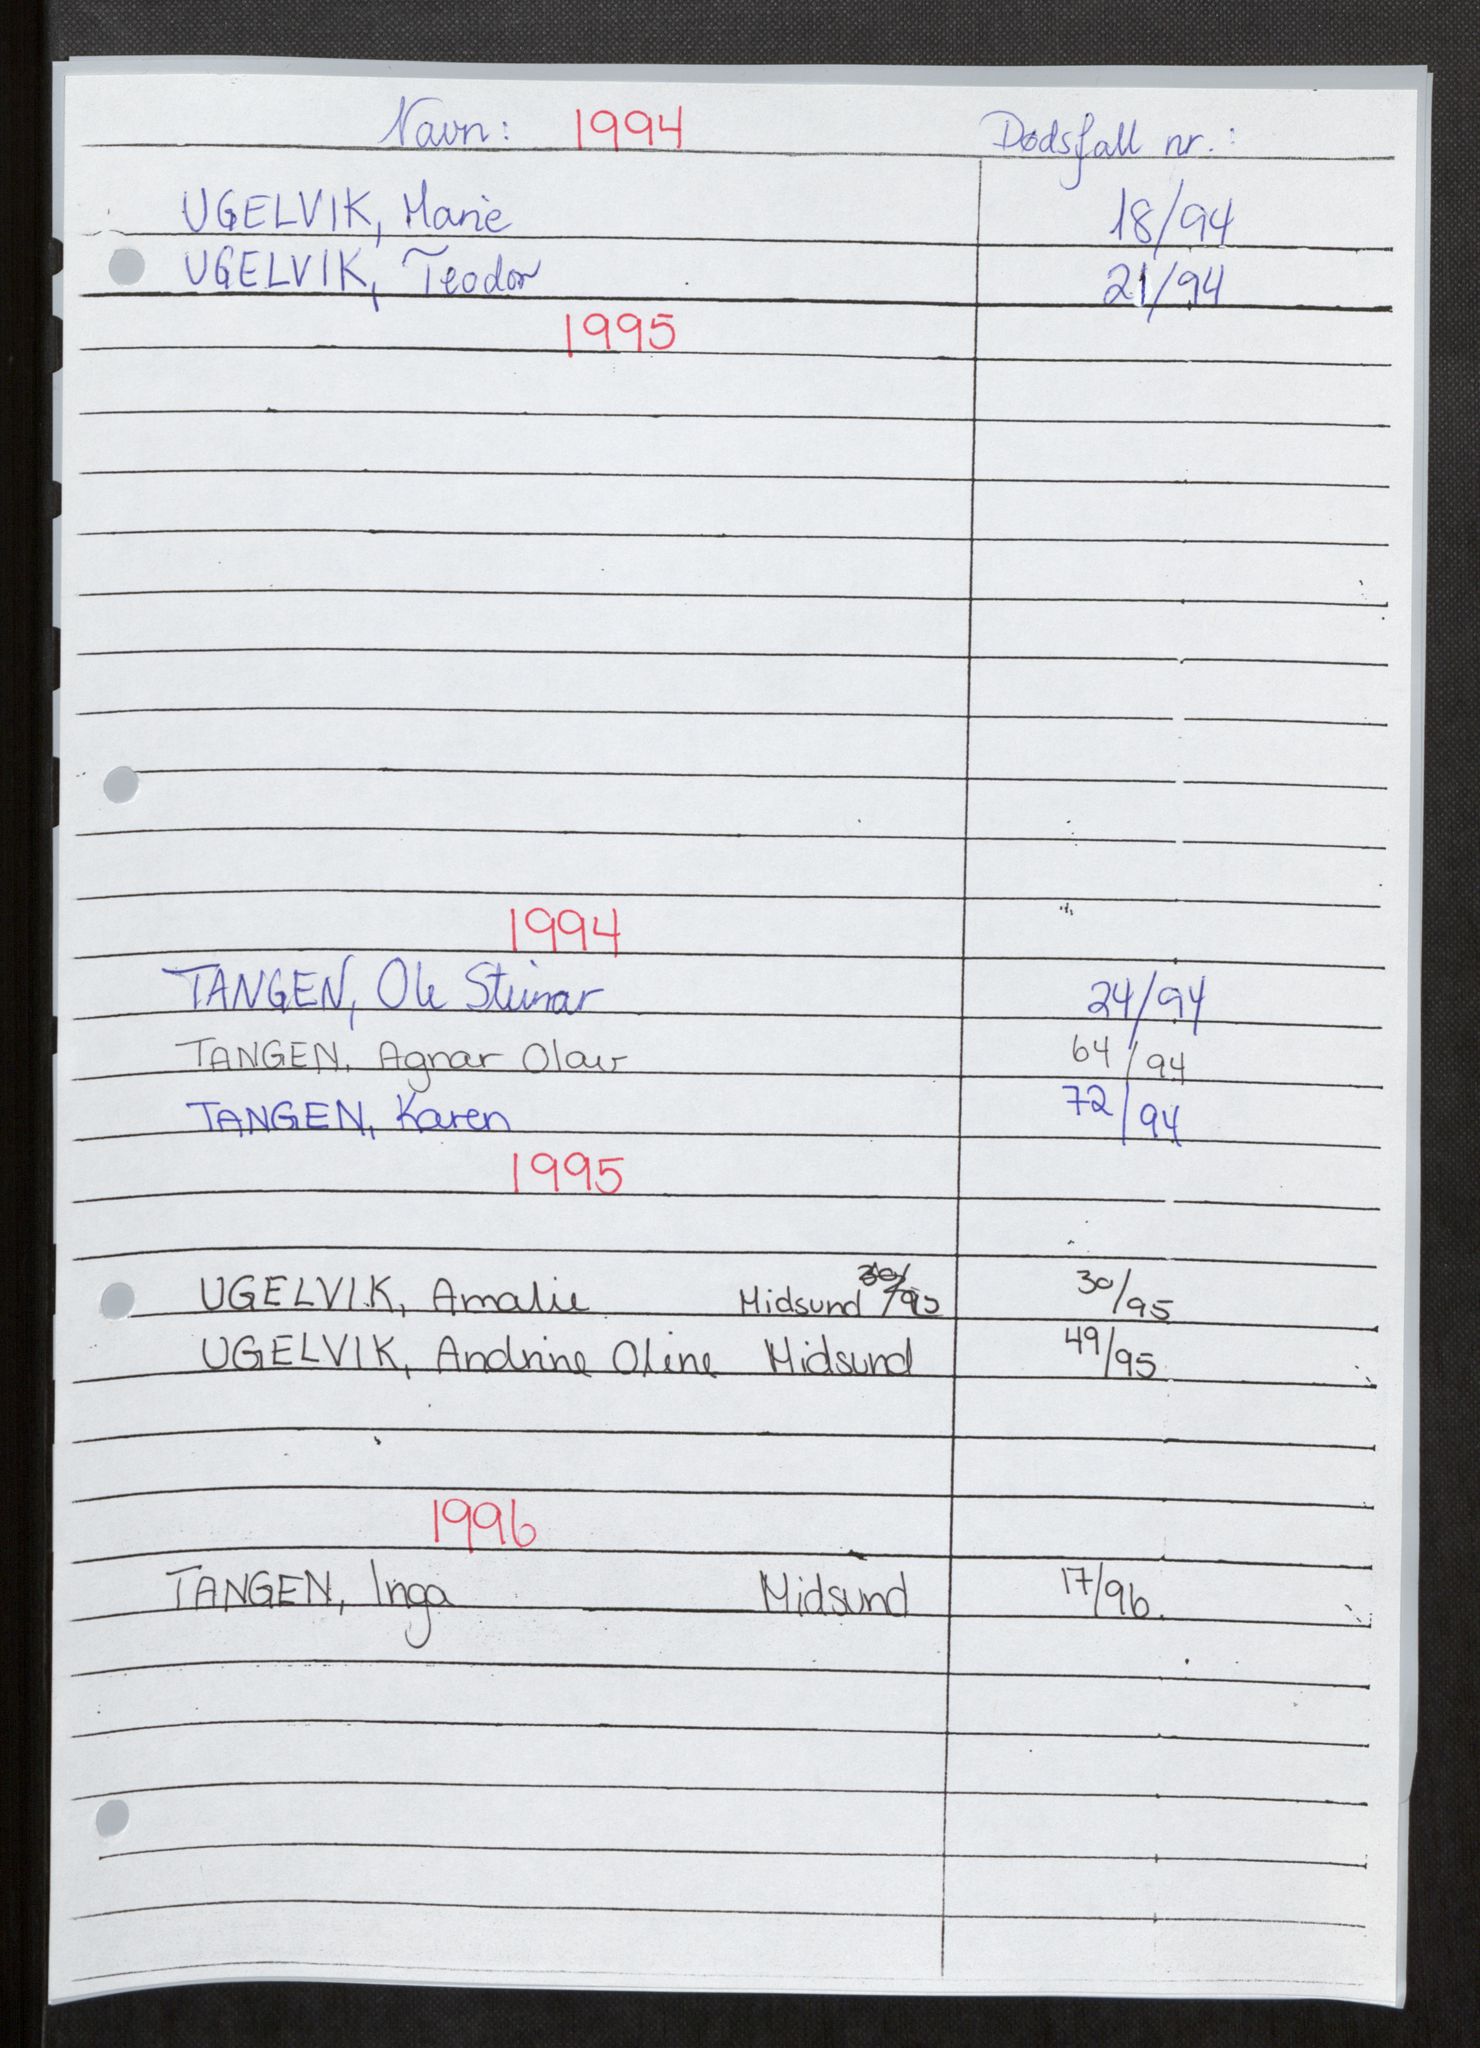 Navn: 1994 Dødsfall nr.:
UGELVIK, Marie 18/94
UGELVIK, Teodor 21/94
1995
1994
TANGEN, Ole Steinar 24/94
TANGEN, Agnar Olav 64/94
TANGEN, Karen 72/94
1995
UGELVIK, Amalie Midsund 30/95 30/95
UGELVIK, Andrine Oline Midsund 49/95
1996
TANGEN, Inga Midsund 17/96